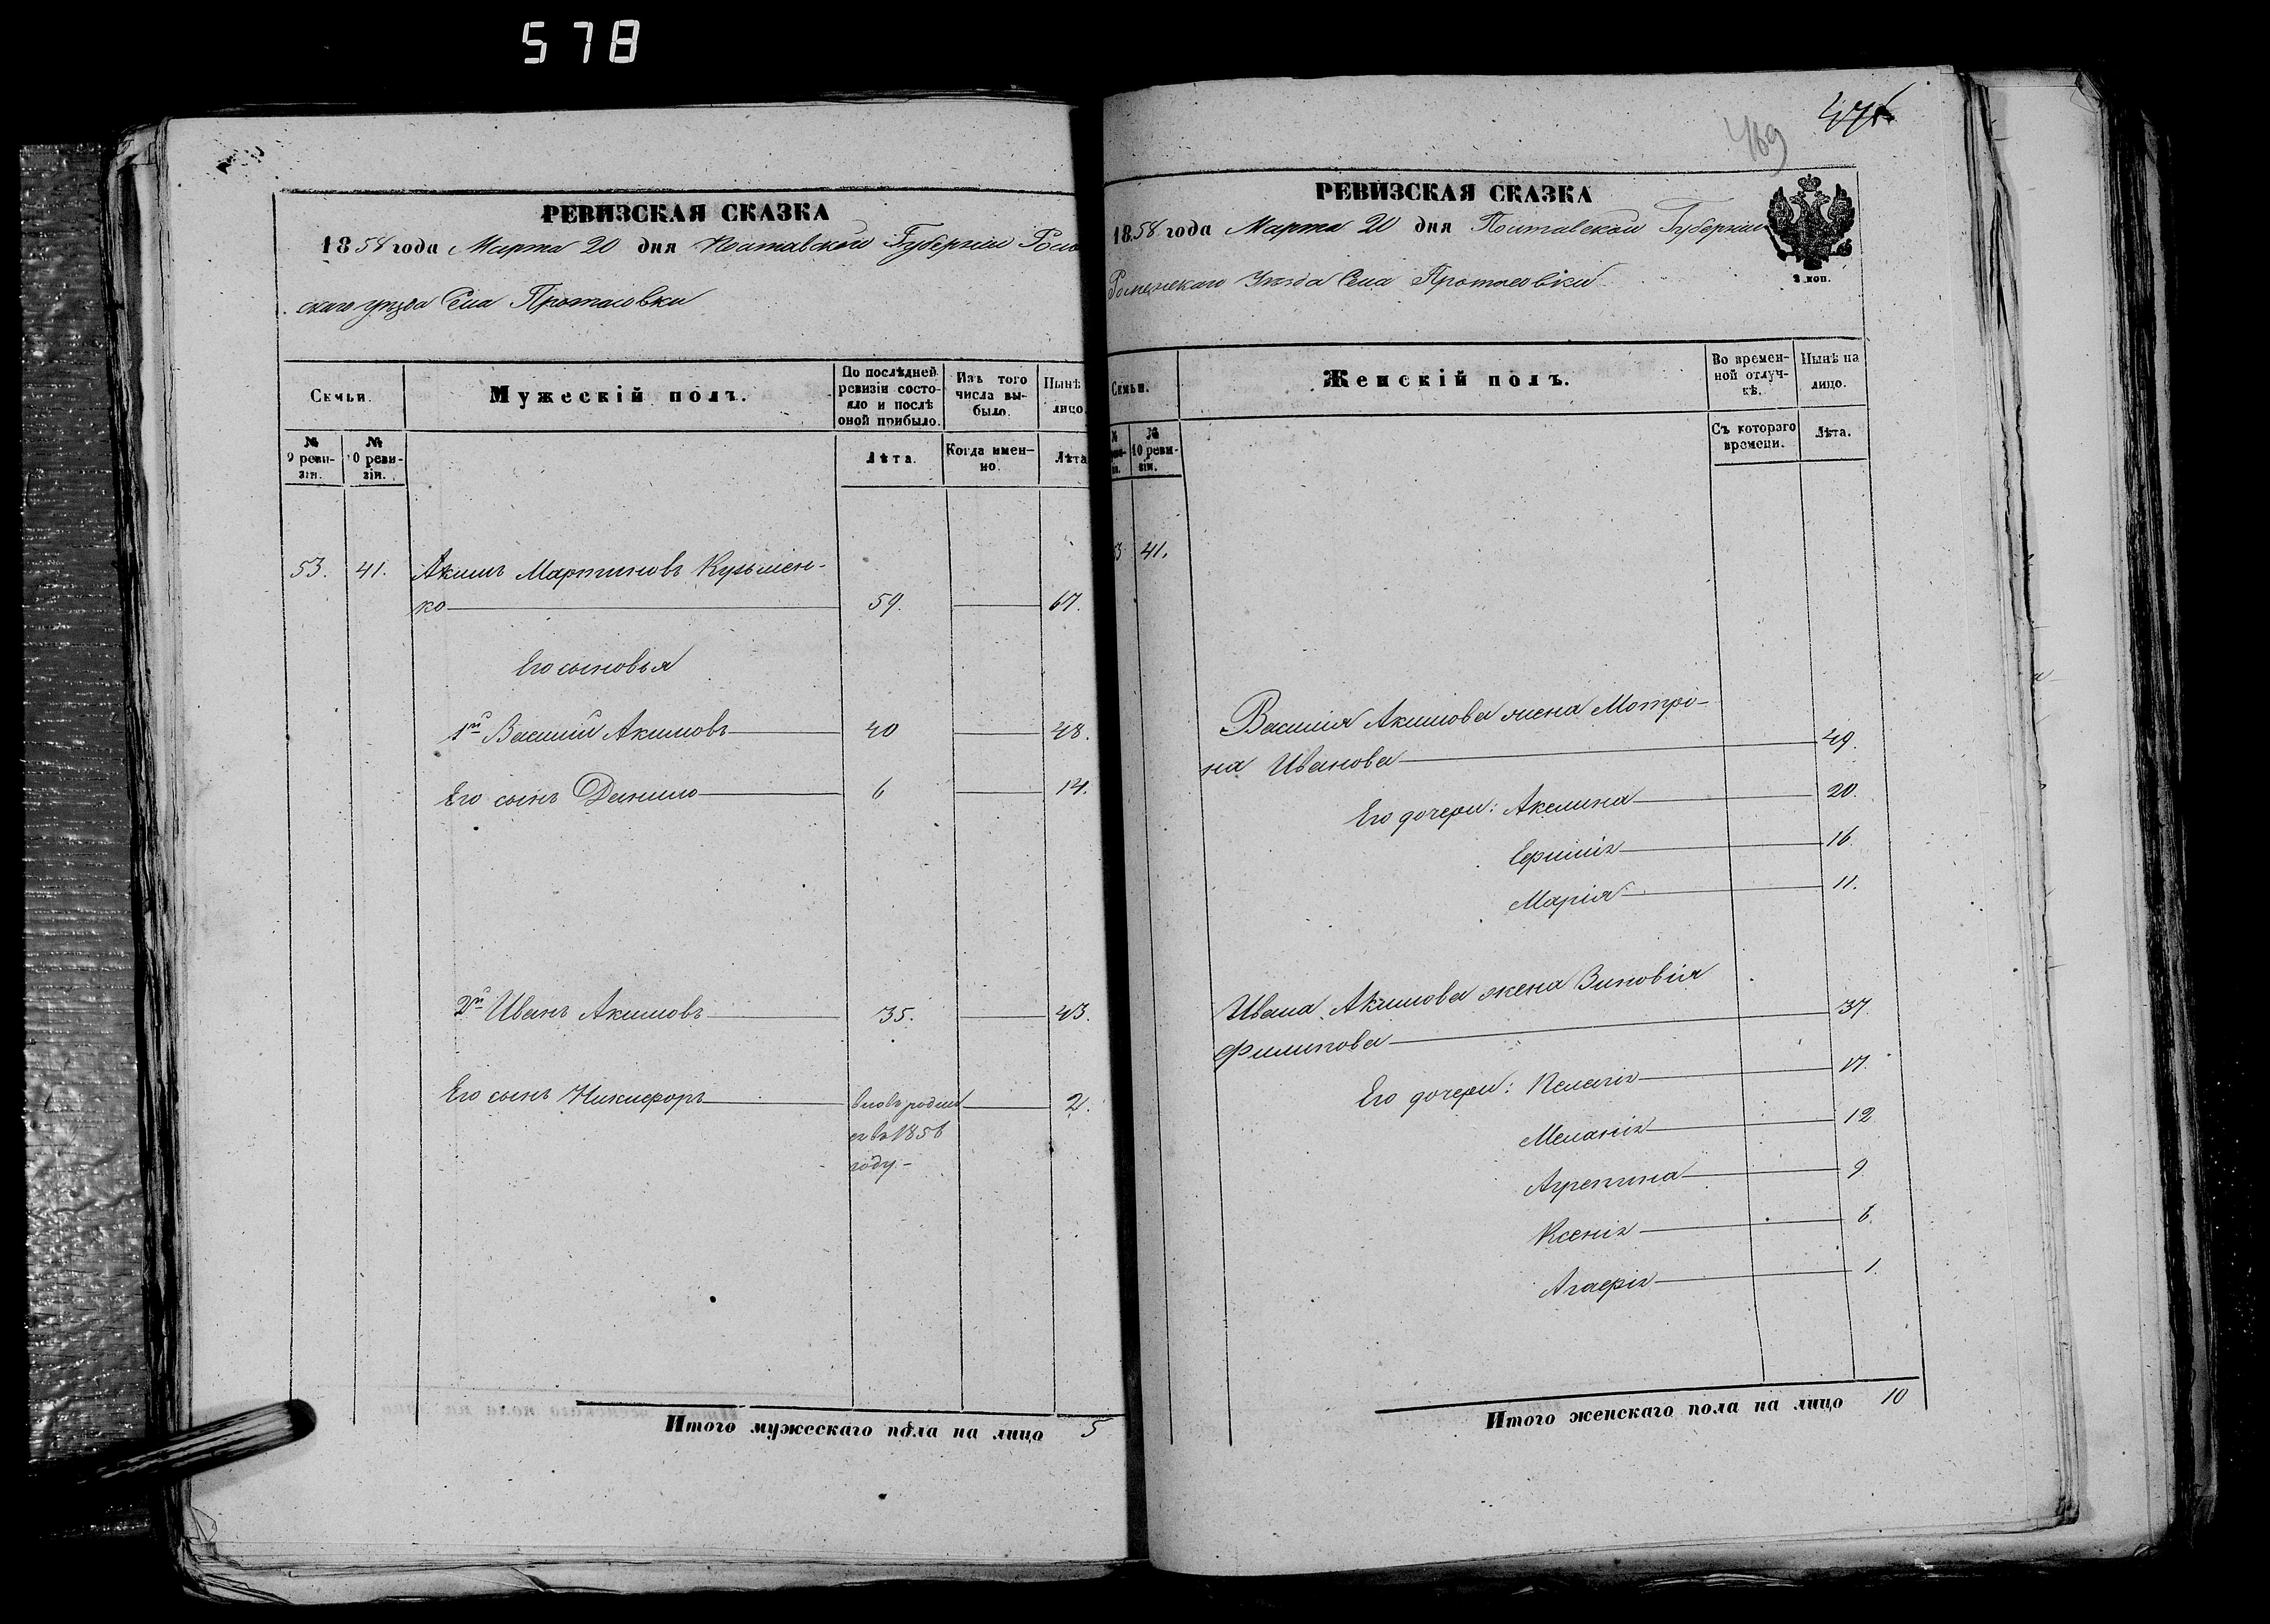 578
РЕВИЗСКАЯ СКАЗКА
1858 года Марта 20 дня Полтавской Губернии Роме
скаго уѣзда Села Протасовки
Семьи.
Мужескій полъ.
По послѣдней ревизіи состояло и послѣ оной прибыло.
Изъ того числа выбыло.
Нынѣ лицо
№ 9 ревизіи.
№ 10 ревизіи.
Лѣта.
Когда именно.
Лѣта
53. 41. Акимъ Мартиновъ Кузьмен-
ко 59. 67.
Его сыновья
1й Василий Акимовъ 40 48.
Его сынъ Данило 6 14.
2й Иванъ Акимовъ 35. 43.
Его сынъ Никифоръ вновь родил 2.
ся въ 1856
году
Итого мужескаго пола на лицо 5
469
РЕВИЗСКАЯ СКАЗКА
1858 года Марта 20 дня Полтавской Губернии
Роменскаго Уѣзда Села Протасовки
2 коп.
Семьи.
Женскій полъ.
Во временной отлучкѣ.
Нынѣ на лицо.
№ 10 ревизіи.
Съ котораго времени.
Лѣта.
3 41.
Василія Акимова жена Мотро-
на Иванова 49.
Его дочери: Акилина 20.
Ефимія 16.
Марія 11.
Ивана Акимова жена Зиновія
Филипова 37.
Его дочери: Пелагія 17.
Меланія 12
Агрепина 9.
Ксенія 6.
Агафія 1.
Итого женскаго пола на лицо 10